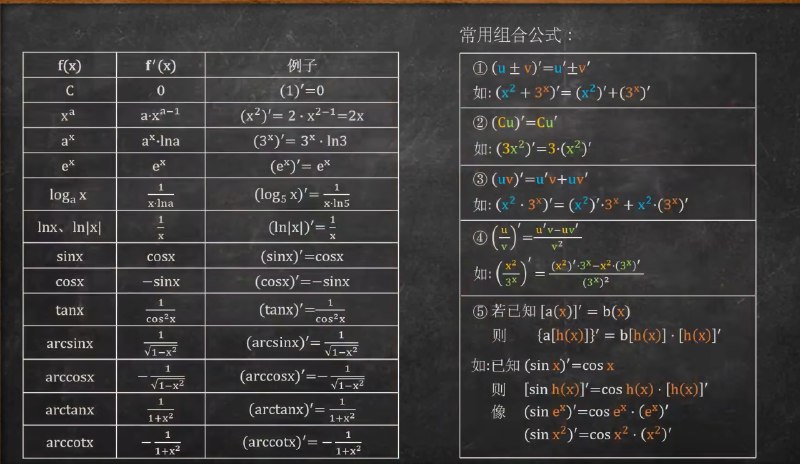 f(x) f′(x) 例子
C 0 (1)′=0
xᵃ a·xᵃ⁻¹ (x²)′= 2 · x²⁻¹=2x
aˣ aˣ·lna (3ˣ)′= 3ˣ · ln3
eˣ eˣ (eˣ)′= eˣ
logₐ x 1/(x·lna) (log₅ x)′= 1/(x·ln5)
lnx、ln|x| 1/x (ln|x|)′= 1/x
sinx cosx (sinx)′=cosx
cosx −sinx (cosx)′=−sinx
tanx 1/cos²x (tanx)′= 1/cos²x
arcsinx 1/√(1−x²) (arcsinx)′= 1/√(1−x²)
arccosx −1/√(1−x²) (arccosx)′=−1/√(1−x²)
arctanx 1/(1+x²) (arctanx)′= 1/(1+x²)
arccotx −1/(1+x²) (arccotx)′= −1/(1+x²)
常用组合公式：
① (u ± v)′=u′±v′
如: (x² + 3ˣ)′= (x²)′+(3ˣ)′
② (Cu)′=Cu′
如: (3x²)′=3·(x²)′
③ (uv)′=u′v+uv′
如: (x² · 3ˣ)′= (x²)′·3ˣ + x²·(3ˣ)′
④ (u/v)′=(u′v−uv′)/v²
如: (x²/3ˣ)′ = ((x²)′·3ˣ−x²·(3ˣ)′)/(3ˣ)²
⑤ 若已知 [a(x)]′ = b(x)
则 {a[h(x)]}′ = b[h(x)] · [h(x)]′
如:已知 (sin x)′=cos x
则 [sin h(x)]′=cos h(x) · [h(x)]′
像 (sin eˣ)′=cos eˣ · (eˣ)′
(sin x²)′=cos x² · (x²)′